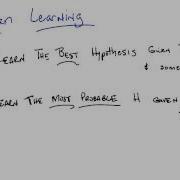 Learning
EARN THE BEST Hypothesis Given
& some
EARN THE MOST PROBABLE H GIVEN